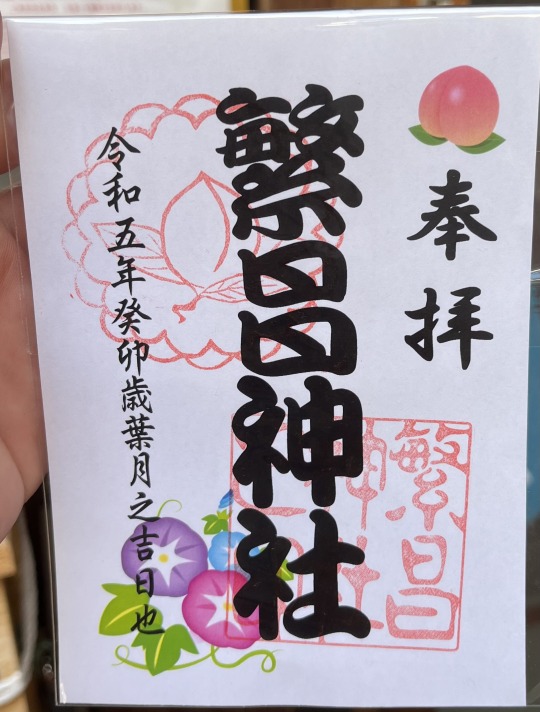 奉拝
繁昌神社
繁昌神社
令和五年癸卯歳葉月之吉日也